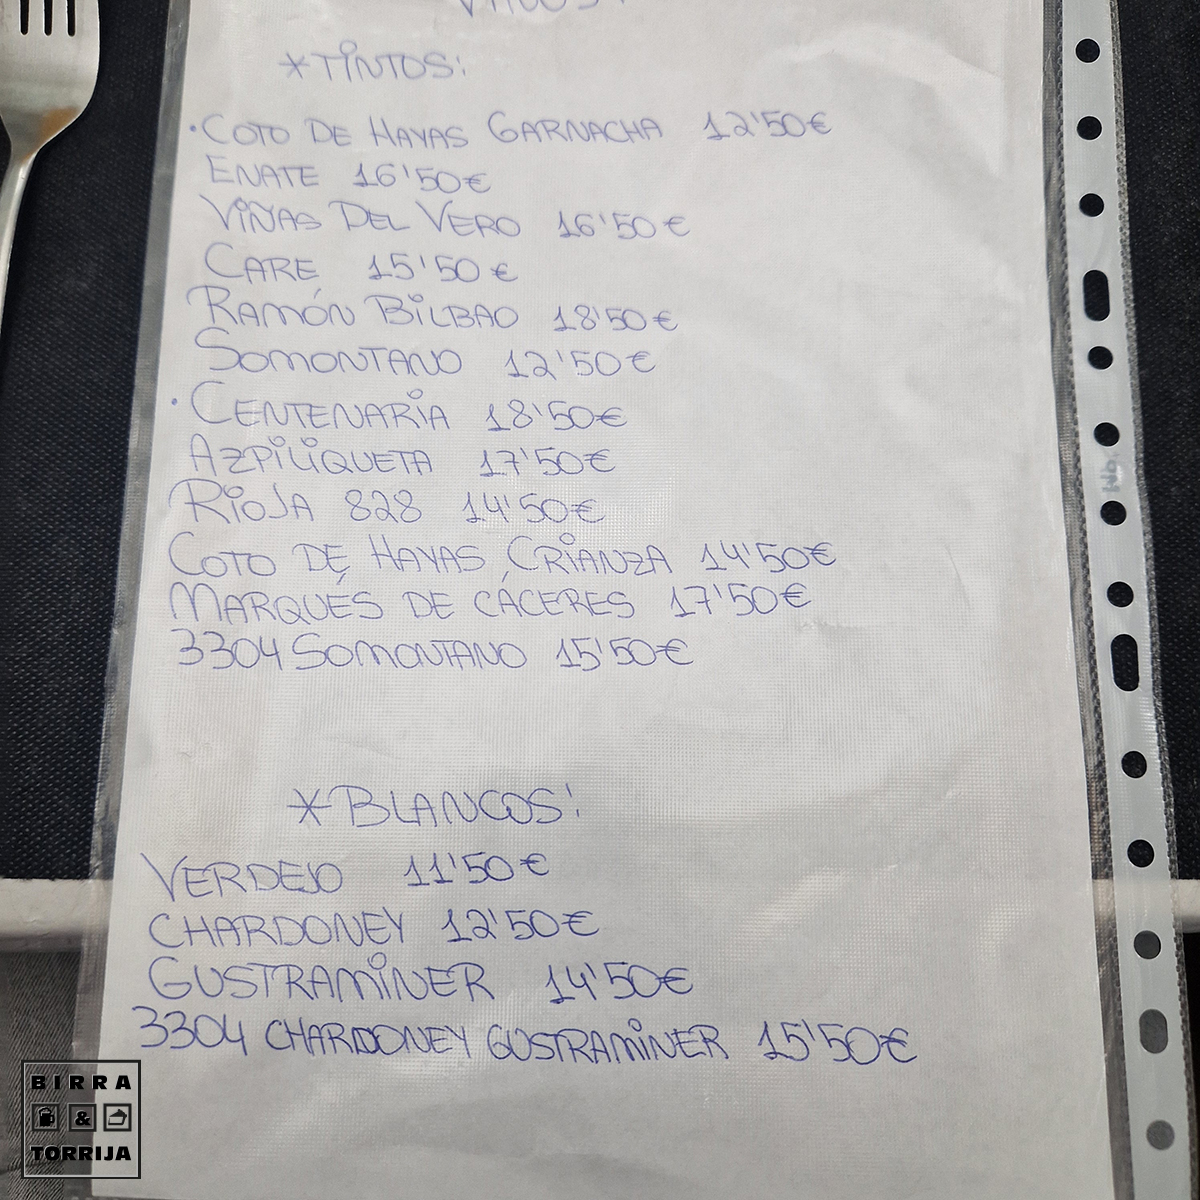 VINOS:
*TINTOS:
·COTO DE HAYAS GARNACHA 12'50€
ENATE 16'50€
VIÑAS DEL VERO 16'50€
CARE 15'50€
RAMÓN BILBAO 18'50€
SOMONTANO 12'50€
·CENTENARIA 18'50€
AZPILIQUETA 17'50€
RIOJA 828 14'50€
COTO DE HAYAS CRIANZA 14'50€
MARQUÉS DE CÁCERES 17'50€
3304 SOMONTANO 15'50€
*BLANCOS:
VERDEJO 11'50€
CHARDONEY 12'50€
GUSTRAMINER 14'50€
3304 CHARDONEY GUSTRAMINER 15'50€
BIRRA
&
TORRIJA